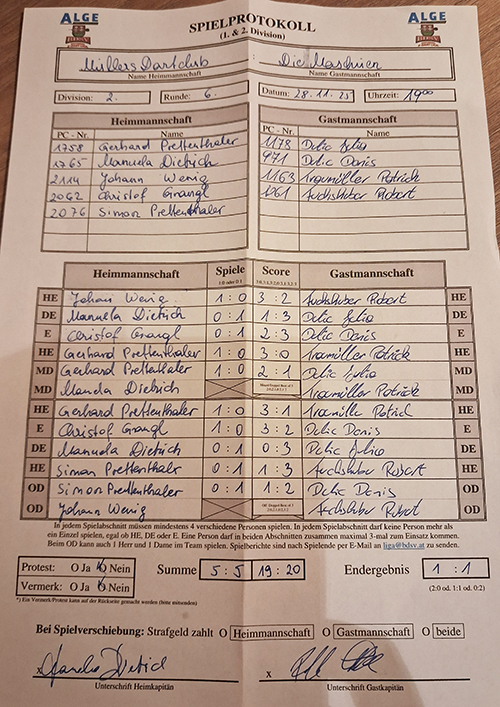 ALGE
SPIELPROTOKOLL
(1. & 2. Division)
ALGE
Müllers Dartclub Die Maschinen
Name Heimmannschaft Name Gastmannschaft
Division: 2. Runde: 6. Datum: 28.11.25 Uhrzeit: 19oo
Heimmannschaft Gastmannschaft
PC - Nr. Name PC - Nr. Name
1758 Gerhard Prettenthaler 1178 Delic Julia
1765 Manuela Dietrich 971 Delic Denis
2114 Johann Wenig 1163 Traumüller Patrick
2062 Christof Grangl 1261 Fuchshuber Robert
2076 Simon Prettenthaler
Heimmannschaft Spiele Score Gastmannschaft
1:0 oder 0:1
HE Johann Wenig 1:0 3:2 Fuchshuber Robert HE
DE Manuela Dietrich 0:1 1:3 Delic Julia DE
E Christof Grangl 0:1 2:3 Delic Denis E
HE Gerhard Prettenthaler 1:0 3:0 Traumüller Patrick HE
MD Gerhard Prettenthaler 1:0 2:1 Delic Julia MD
MD Manuela Dietrich Traumüller Patrick MD
HE Gerhard Prettenthaler 1:0 3:1 Traumüller Patrick HE
E Christof Grangl 1:0 3:2 Delic Denis E
DE Manuela Dietrich 0:1 0:3 Delic Julia DE
HE Simon Prettenthaler 0:1 1:3 Fuchshuber Robert HE
OD Simon Prettenthaler 0:1 1:2 Delic Denis OD
OD Johann Wenig Fuchshuber Robert OD
In jedem Spielabschnitt müssen mindestens 4 verschiedene Personen spielen. In jedem Spielabschnitt darf keine Person mehr als
ein Einzel spielen, egal ob HE, DE oder E. Eine Person darf in beiden Abschnitten zusammen maximal 3-mal zum Einsatz kommen.
Beim OD kann auch 1 Herr und 1 Dame im Team spielen. Spielberichte sind nach Spielende per E-Mail an liga@bdsv.at zu senden.
Protest: O Ja O Nein Summe 5:5 19:20 Endergebnis 1:1
Vermerk: O Ja O Nein (2:0 od. 1:1 od. 0:2)
*) Ein Vermerk/Protest kann auf der Rückseite gemacht werden (bitte unterenden)
Bei Spielverschiebung: Strafgeld zahlt O Heimmannschaft O Gastmannschaft O beide
x
Unterschrift Heimkapitän Unterschrift Gastkapitän